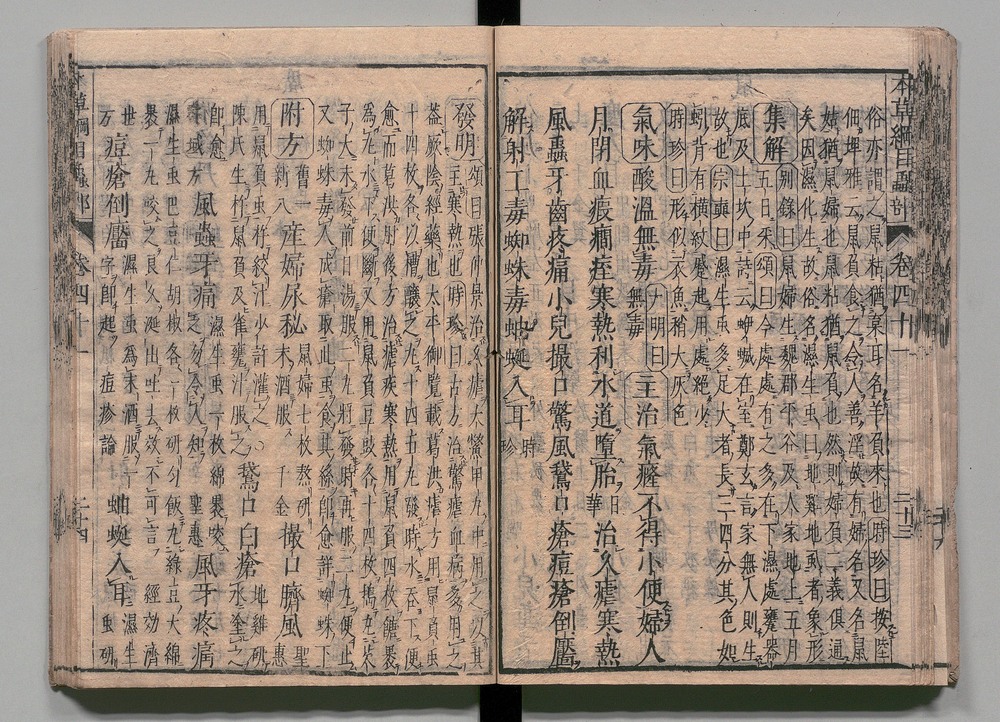 本草綱目蟲部 卷四十一
俗亦謂之鼠粘猶枲耳名羊負來也時珍曰按陸
佃埤雅云鼠負食之令人善淫故有婦名又名鼠
姑猶鼠婦也鼠粘猶鼠負也然則婦負二義俱通
矣因濕化生故俗名濕生虫曰地雞地虱者象形
集解 別錄曰鼠婦生魏郡平谷及人家地上五月
五日采頌曰今處處有之多在下濕處甕器
底及土坎中詩云蛜蝛在室鄭玄言家無人則生
故也宗奭曰濕生虫多足大者長三四分其色如
蚓背有橫紋蹙起用處絕少
時珍曰形似衣魚稍大灰色
氣味酸溫無毒 大明曰無毒 主治氣癃不得小便婦人
月閉血瘕癇痓寒熱利水道墮胎 日華 治久瘧寒熱
風蟲牙齒疼痛小兒撮口驚風鵞口瘡痘瘡倒靨
解射工毒蜘蛛毒蚰蜒入耳 時珍
發明 頌曰張仲景治久瘧大鱉甲丸中用之以其
主寒熱也時珍曰古方治驚瘧血病多用之
蓋厥陰經藥也太平御覽載葛洪瘧方用鼠負虫
十四枚各以糟釀之丸十四丸發時水吞下便
愈而葛洪肘後方治瘧疾寒熱用鼠負四枚飴裹
為丸水下便斷又用鼠負豆豉各十四枚擣丸芡
子大未發前日湯服二丸將發時再服二丸便止
又蜘蛛毒人成瘡取此虫食其絲即愈詳蜘蛛下
附方 舊一新八 產婦尿秘 鼠婦七枚熬研末酒服 千金 撮口臍風 聖惠
用鼠負虫杵絞汁少許灌之○
陳氏生杵鼠負及雀甕汁服之 鵞口白瘡 地雞研水塗之
即愈
風蟲牙痛 濕生虫一枚綿裹咬之勿令人知 聖惠 風牙疼痛
濕生虫巴豆仁胡椒各一枚研勻飯丸綠豆大綿
裹一丸咬之良久涎出吐去效不可言 經効濟
世方 痘瘡倒靨 濕生虫為末酒服一字即起 痘疹論 蚰蜒入耳 濕生虫研